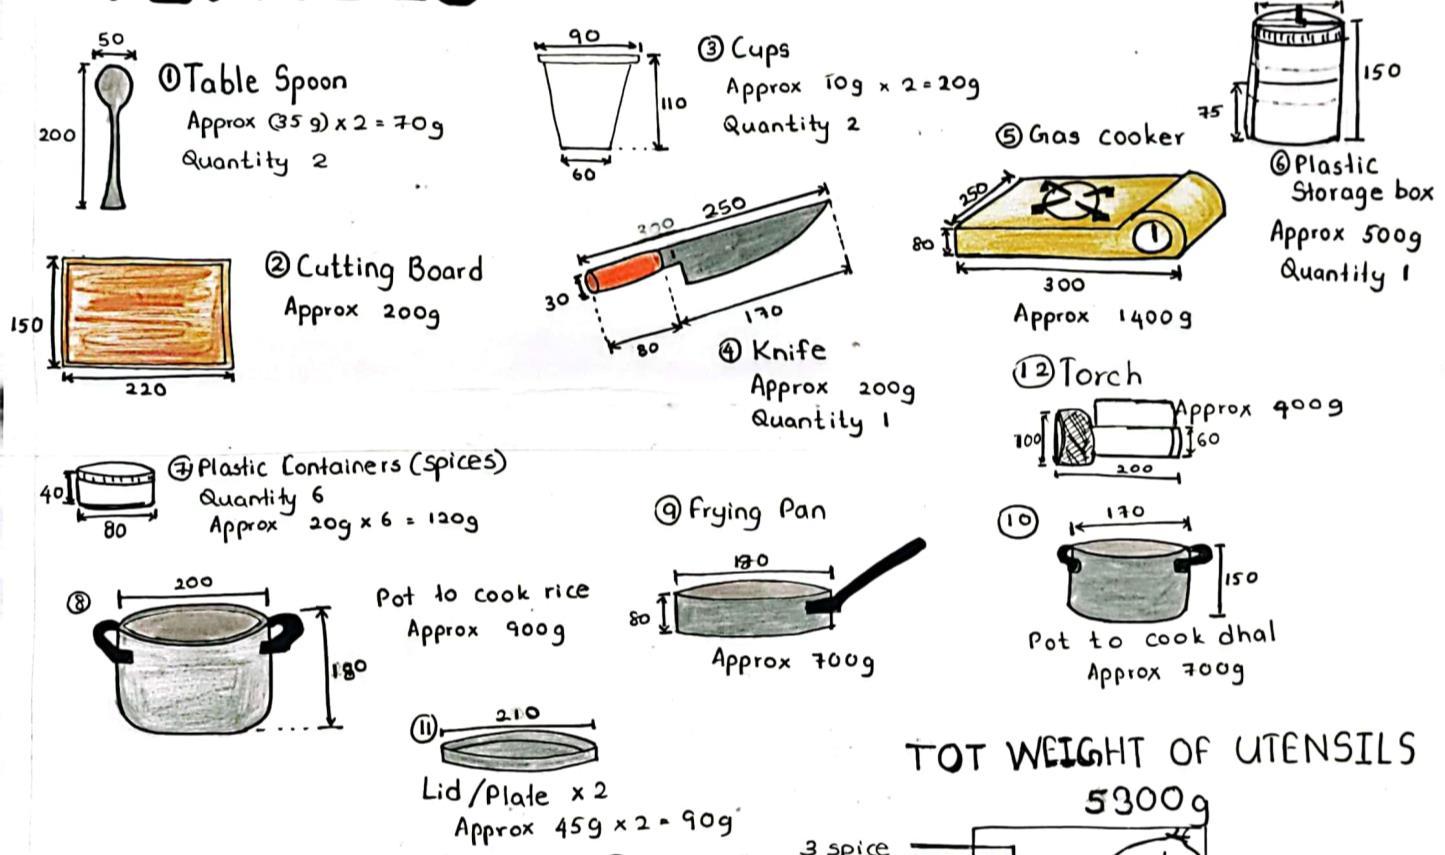 50
200
① Table Spoon
Approx (35 g) x 2 = 70g
Quantity 2
90
110
60
③ Cups
Approx 10g x 2 = 20g
Quantity 2
150
75
⑥ Plastic
Storage box
Approx 500g
Quantity 1
⑤ Gas cooker
250
80
300
Approx 1400g
150
220
② Cutting Board
Approx 200g
250
200
30
80
170
④ Knife
Approx 200g
Quantity 1
⑫ Torch
Approx 900g
100
60
200
40
80
⑦ Plastic Containers (spices)
Quantity 6
Approx 20g x 6 = 120g
⑧
200
180
Pot to cook rice
Approx 900g
⑨ Frying Pan
180
80
Approx 700g
⑩
170
150
Pot to cook dhal
Approx 700g
⑪
210
Lid/Plate x 2
Approx 45g x 2 = 90g
TOT WEIGHT OF UTENSILS
5300g
3 spice